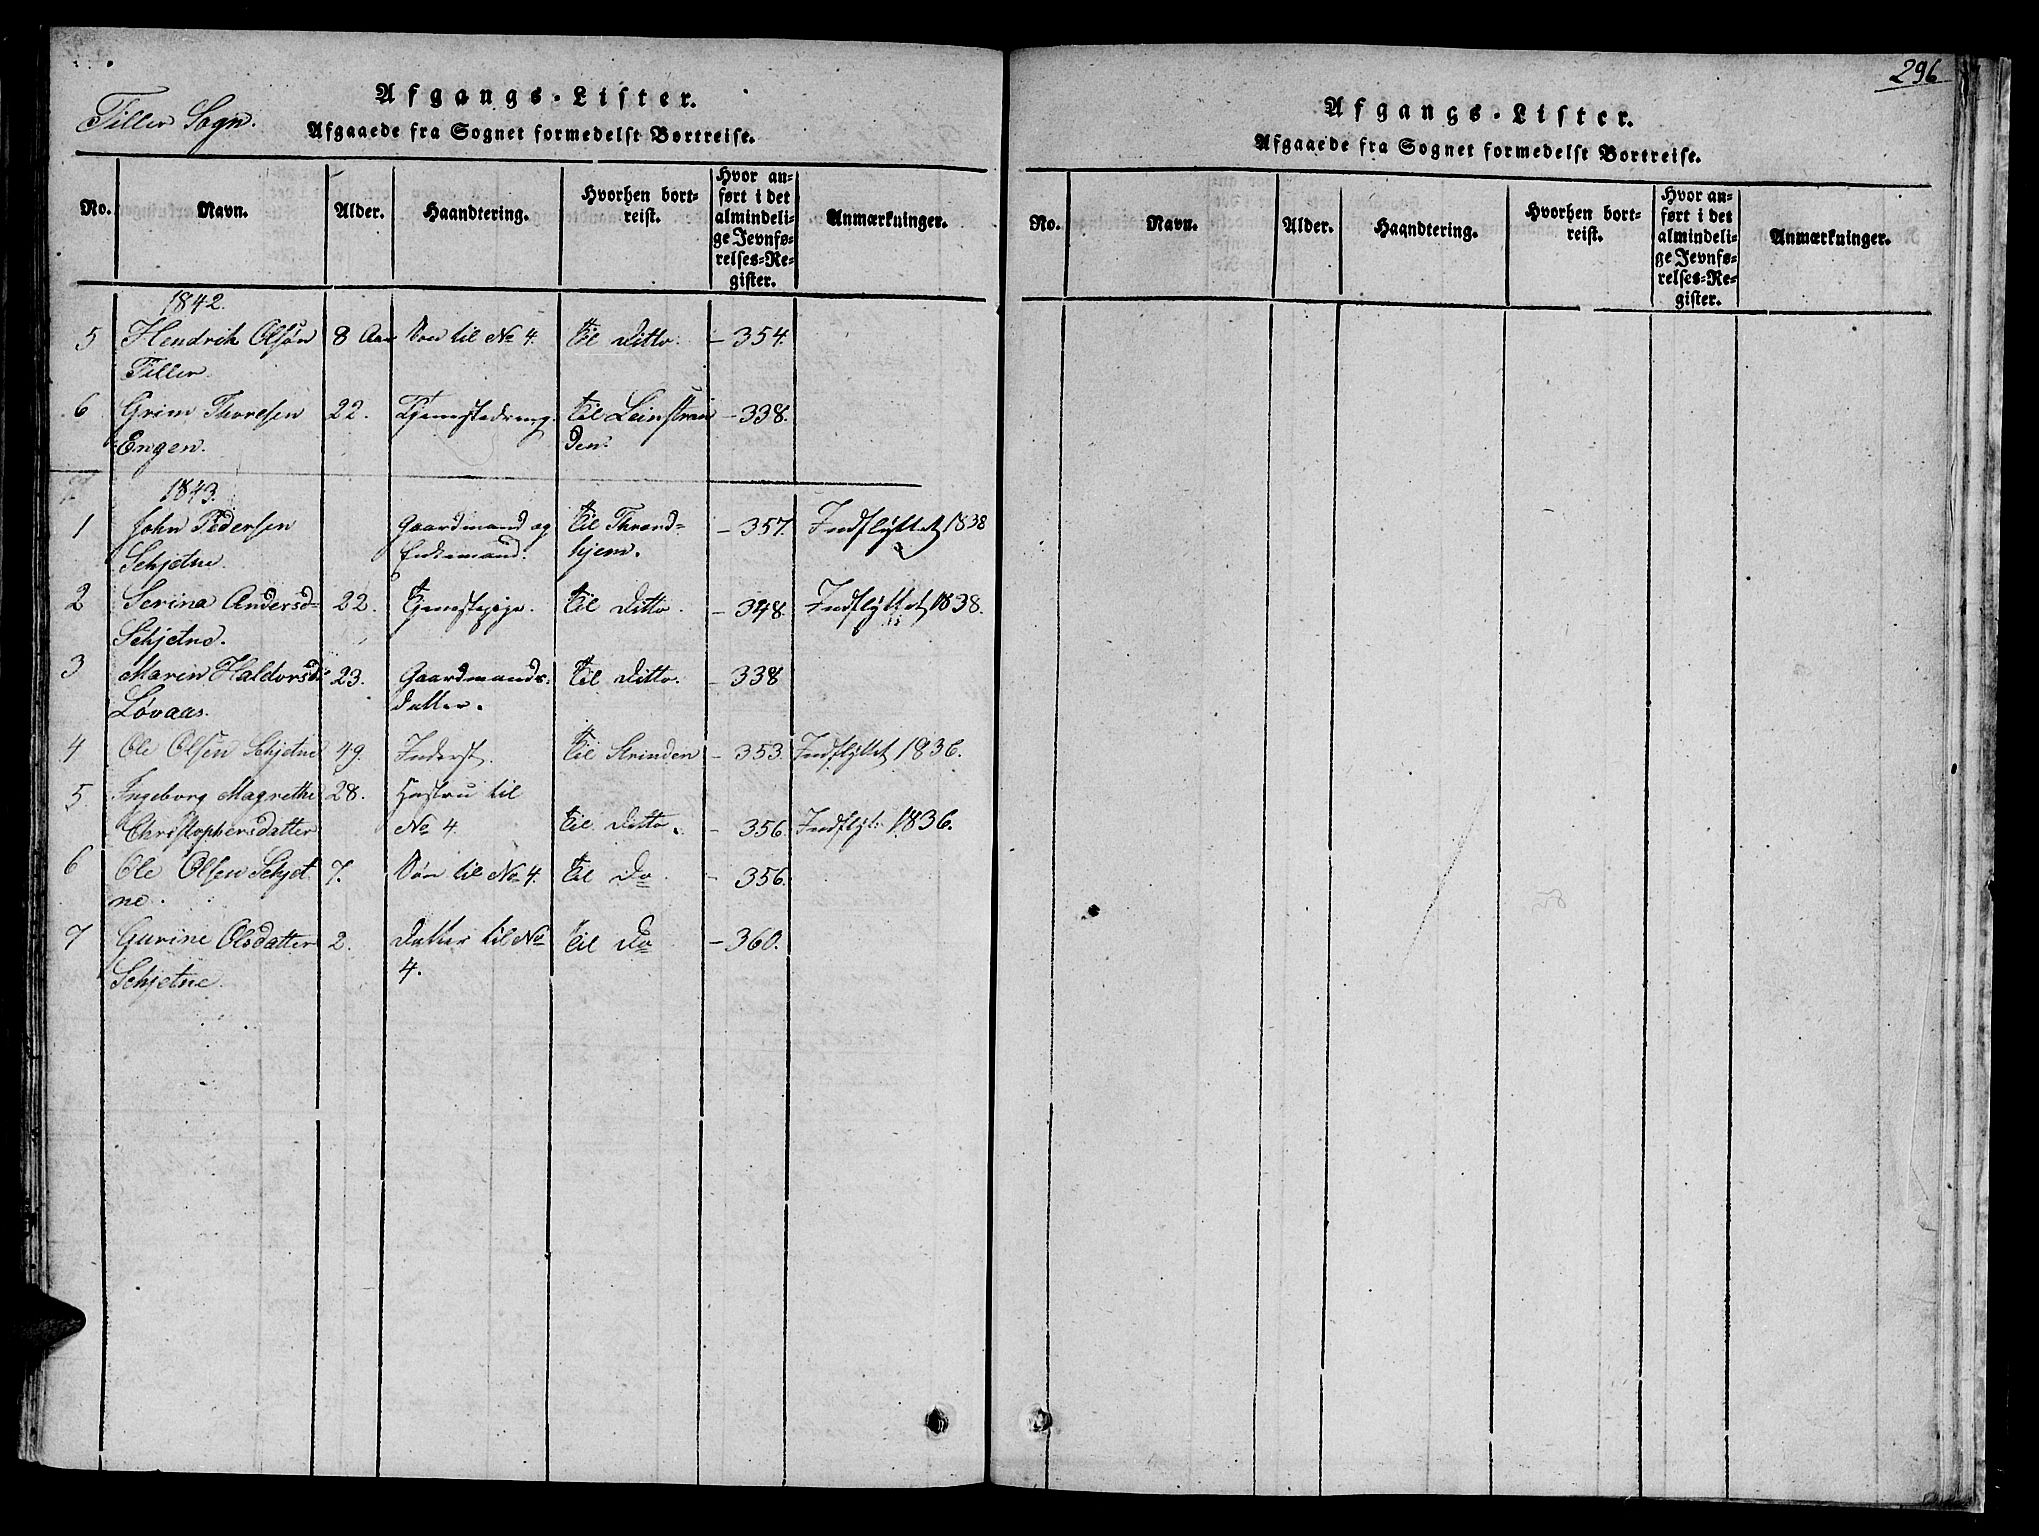 Tiller Sogn.
Afgangs-Lister.
Afgaaede fra Sognet formedelst Bortreise.
No. Navn. Alder. Haandtering. Hvorhen bortreist. Hvor anført i det almindelige Jevnførelses-Register. Anmærkninger.
1842.
5 Hendrik Olsøn 8 Aar Søn til No 4. til Ditto. - 354.
Tiller.
6 Grim Thoresen 22. Tjenestedreng. til Leinstran - 338.
Engen. den.
1843.
1 John Pedersen Gaardmand og til Thrond= - 357. Indflyttet 1838
Schjetne. Enkemand. hjem.
2 Serina Andersd= 22. Tjenestepige. til Ditto. - 348. Indflyttet 1838.
Schjetne.
3 Maren Haldorsd: 23. Gaardmands= til Ditto. - 338
Løvaas. datter.
4 Ole Olsen Schjetne 49. Inderst. til Strinden - 353. Indflyttet 1836.
5 Ingeborg Magrethe 28. Hustru til
Christophersdatter No 4. til Ditto. - 356. Indflyt: 1836.
6 Ole Olsen Schjet 7. Søn til No 4. til Do - 356.
ne.
7 Gurine Olsdatter 2. Datter til No til Do - 360.
Schjetne. 4.
296
Afgangs-Lister.
Afgaaede fra Sognet formedelst Bortreise.
No. Navn. Alder. Haandtering. Hvorhen bortreist. Hvor anført i det almindelige Jevnførelses-Register. Anmærkninger.